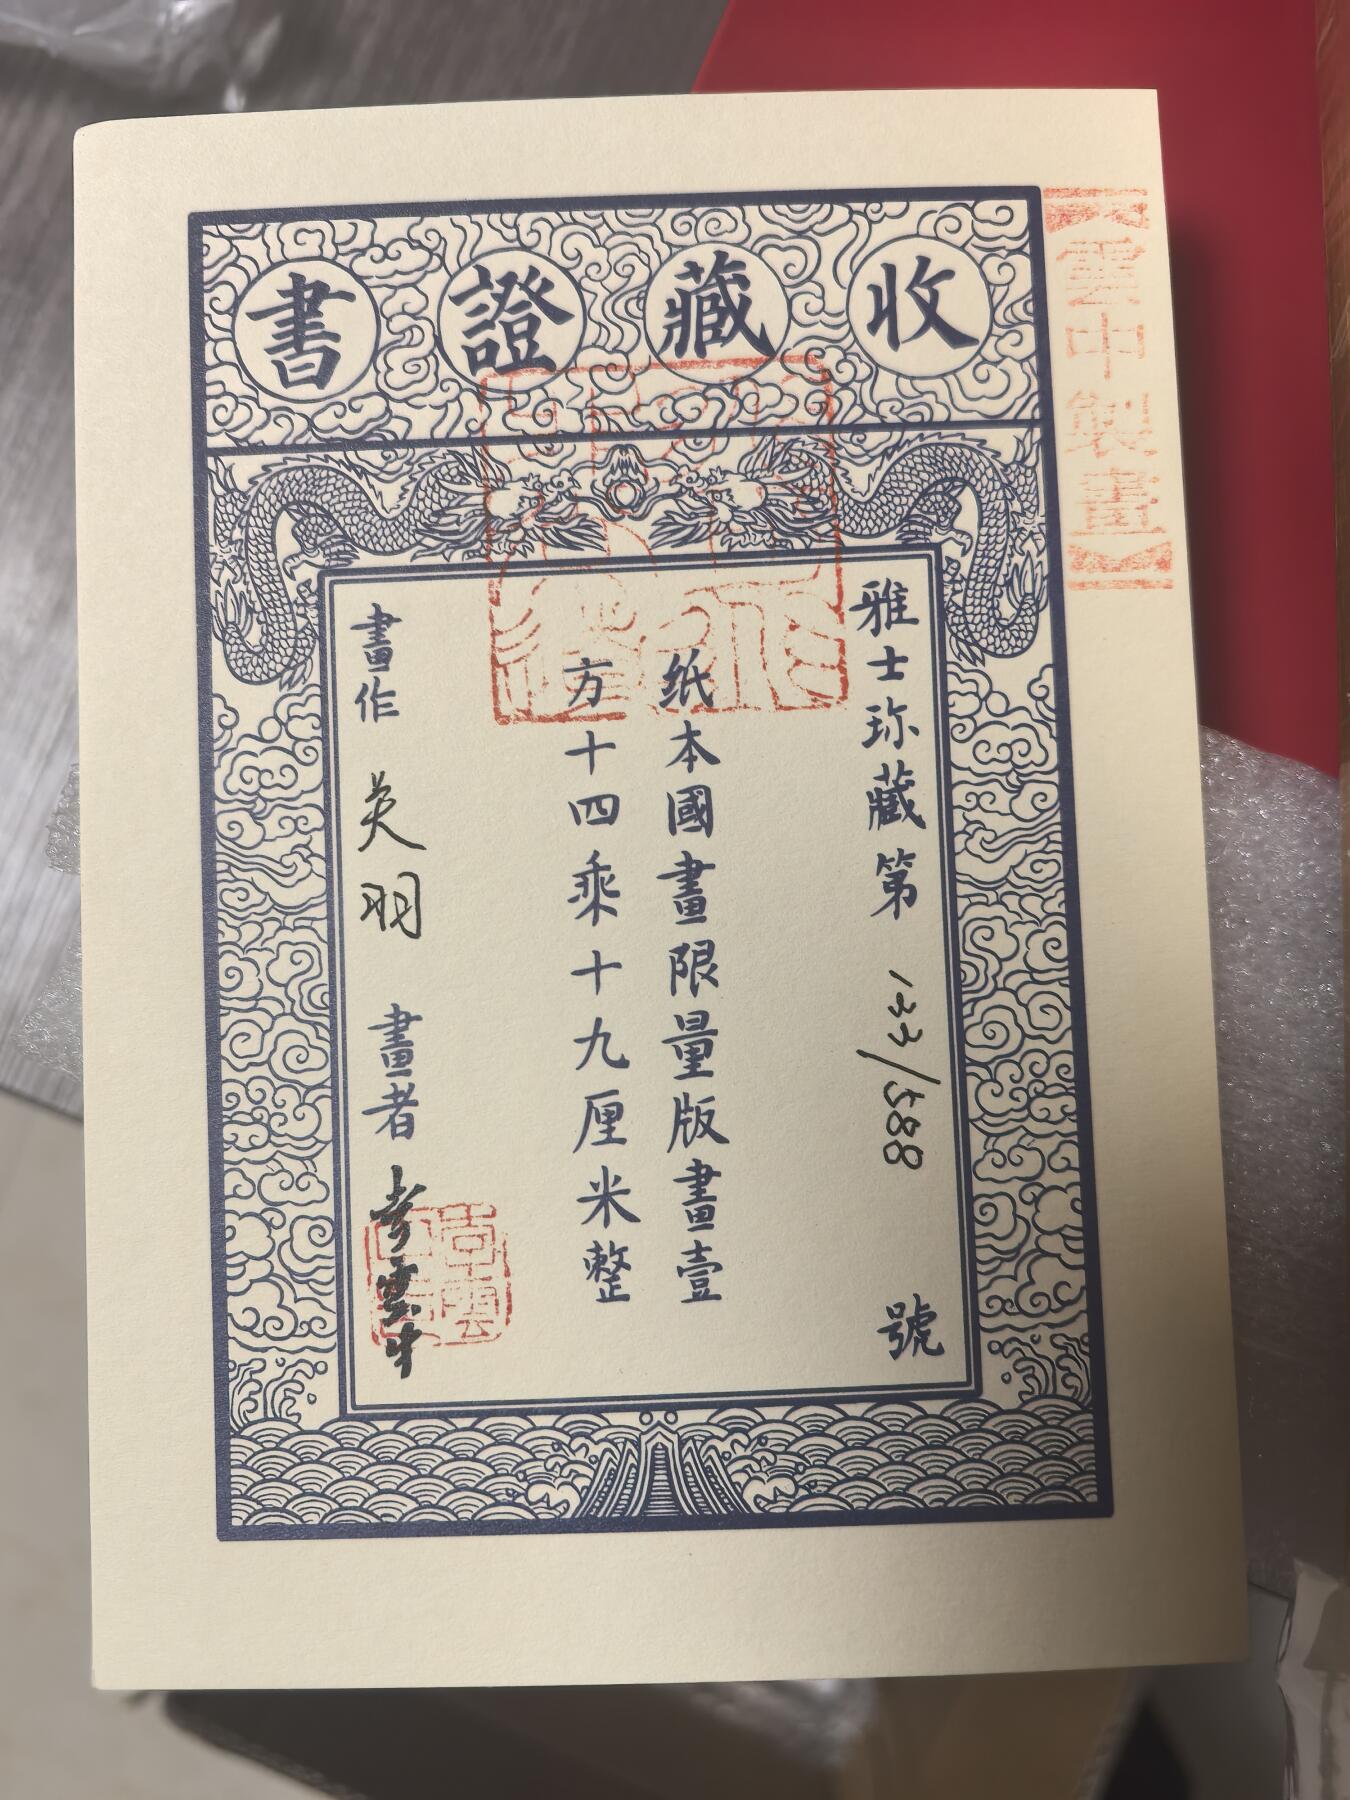 收藏證書
雲中製畫
雅士珎藏第 133/588 號
纸本國畫限量版畫壹
方十四乘十九厘米整
畫作 炎羽 畫者 李雲中